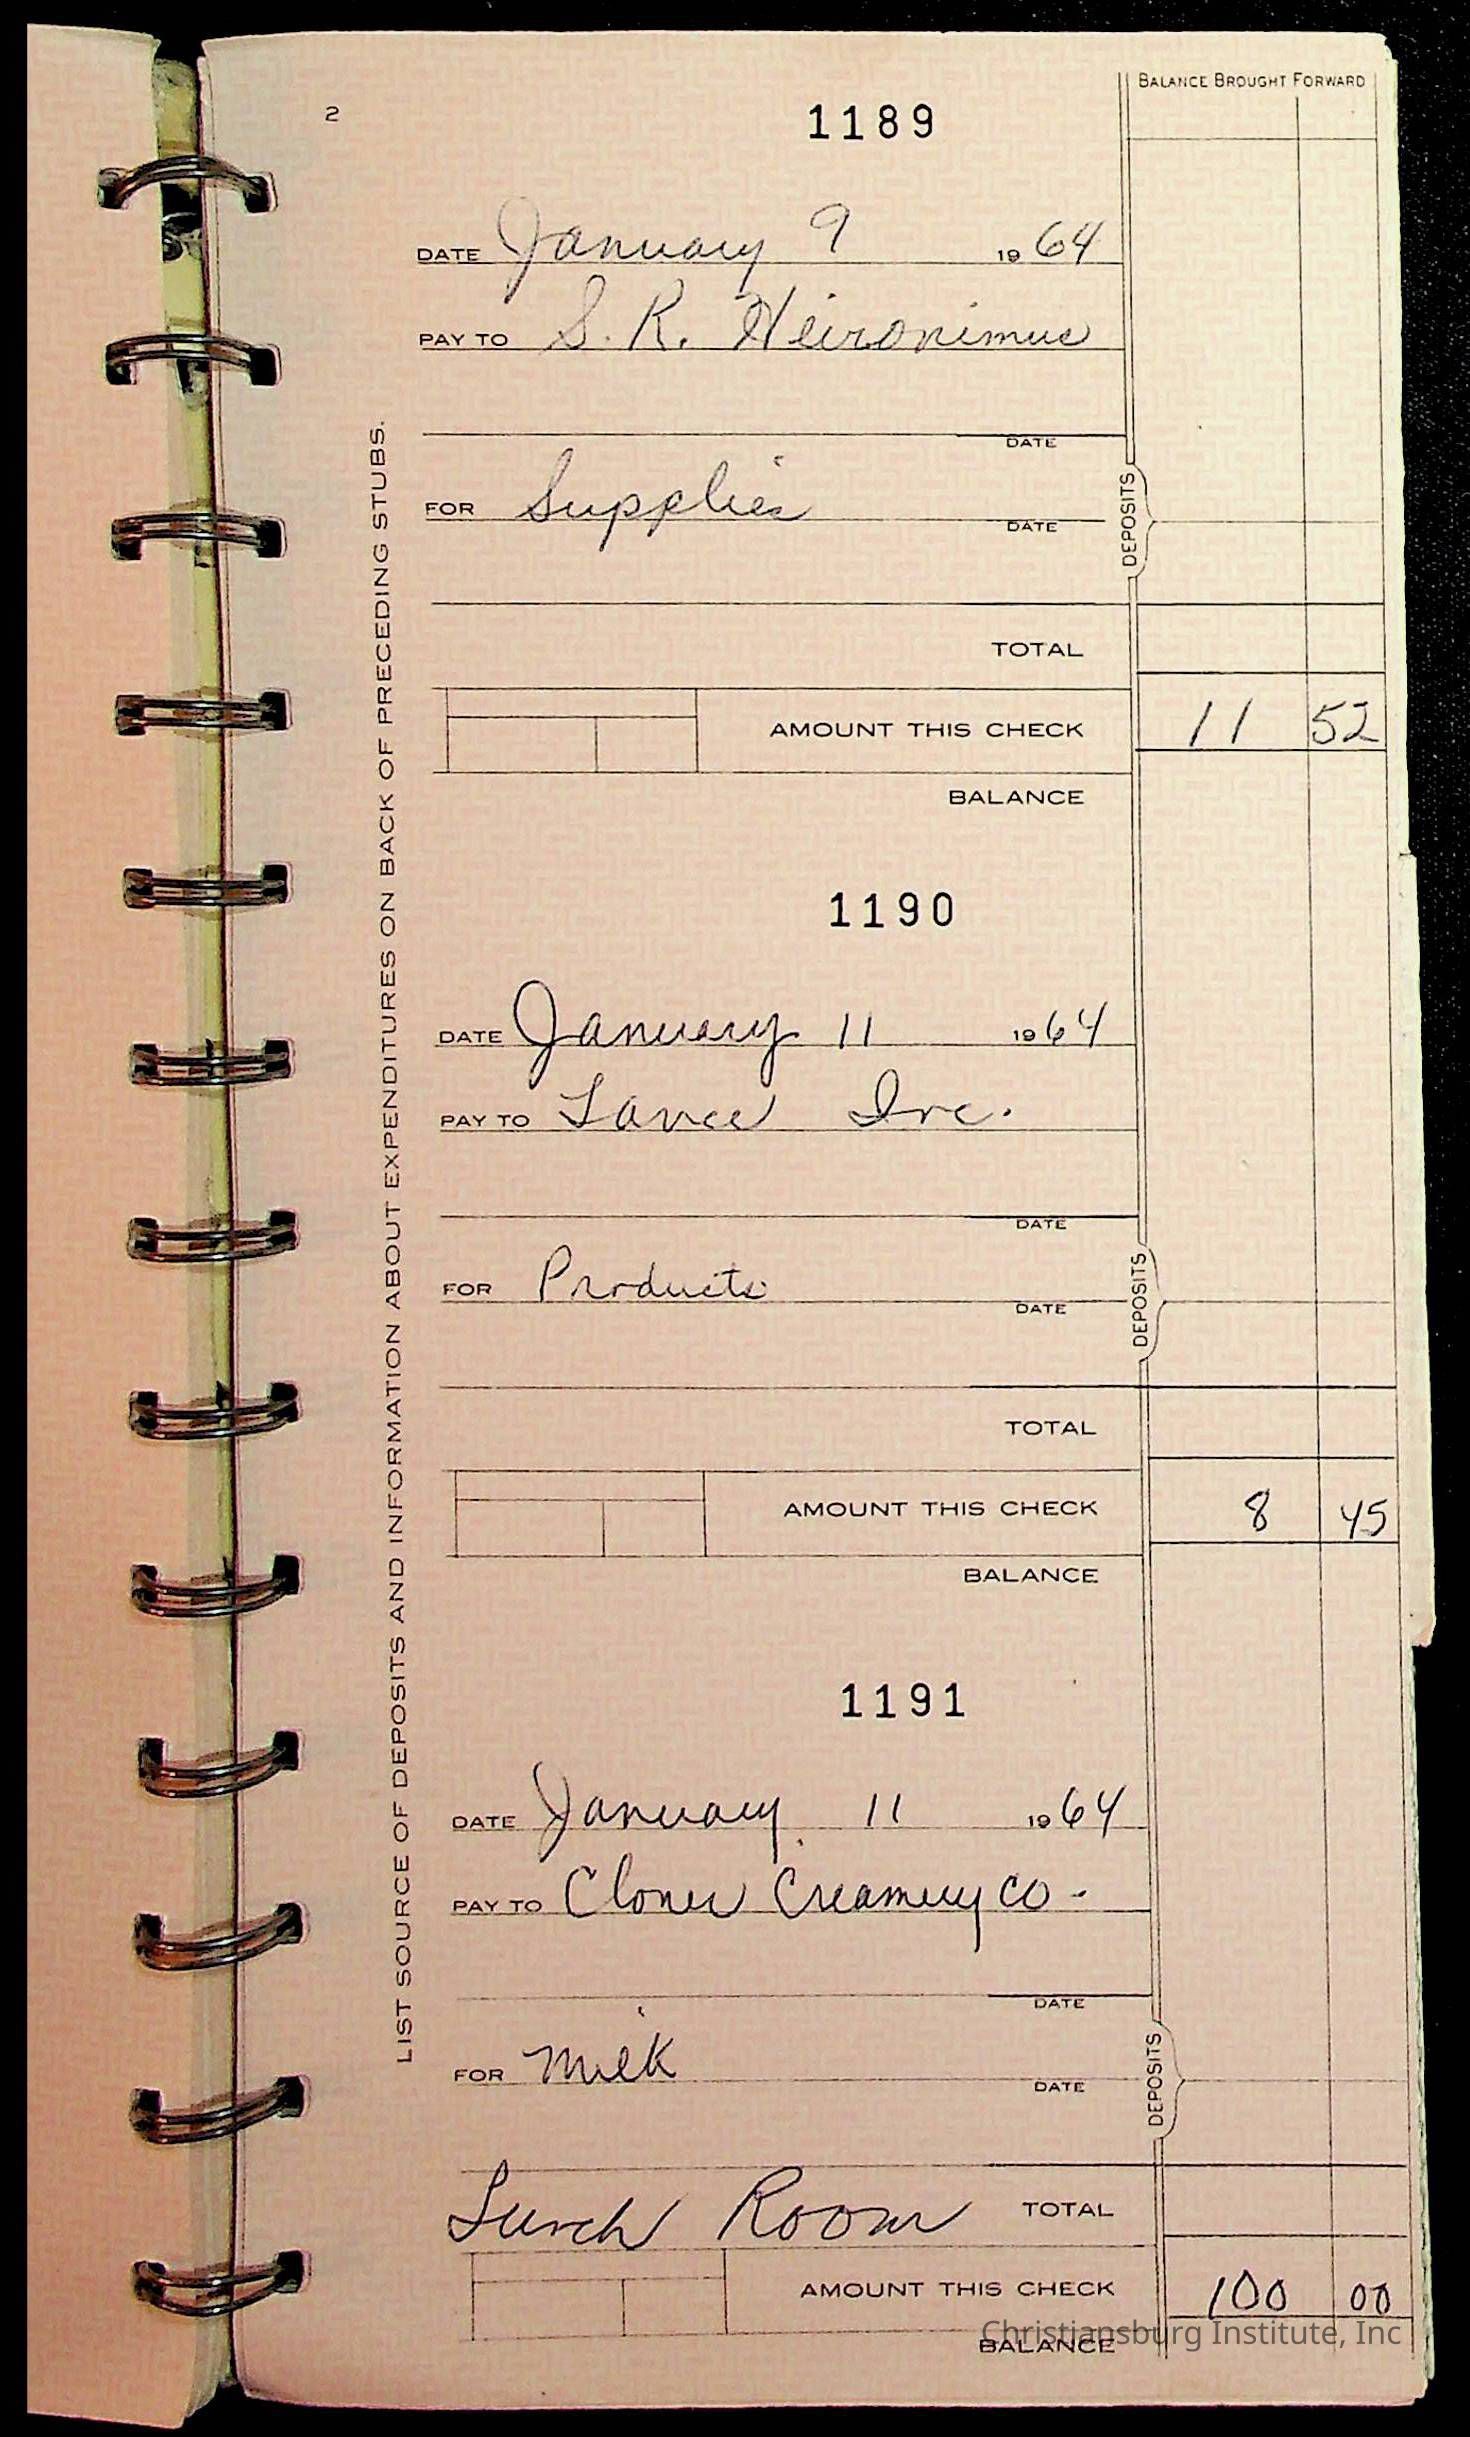 2
BALANCE BROUGHT FORWARD
LIST SOURCE OF DEPOSITS AND INFORMATION ABOUT EXPENDITURES ON BACK OF PRECEDING STUBS.
1189
DATE January 9 1964
PAY TO S. R. Heironimus
DATE
FOR Supplies DATE
DEPOSITS
TOTAL
AMOUNT THIS CHECK 11 52
BALANCE
1190
DATE January 11 1964
PAY TO Lance Inc.
DATE
FOR Products DATE
DEPOSITS
TOTAL
AMOUNT THIS CHECK 8 45
BALANCE
1191
DATE January 11 1964
PAY TO Clover Creamery Co.
DATE
FOR Milk DATE
DEPOSITS
Lunch Room TOTAL
AMOUNT THIS CHECK 100 00
BALANCE
Christiansburg Institute, Inc